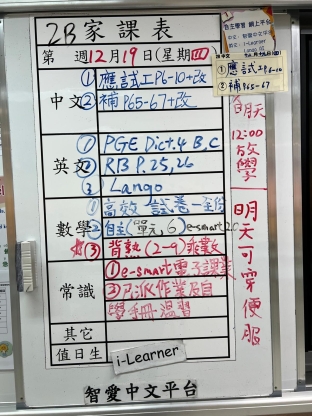 2B家課表
第 週12月19日(星期四)
中文
①應試工P6-10+改
②補P65-67+改
英文
①PGE Dict.4 B,C
②RB P.25,26
③Lango
數學
①高效試卷一全份
②自主(單元6)e-smart
(3)背熟(2-9)乘數表
常識
①e-smart電子課業
②乃派作業及自
學手冊溫習
其它
值日生
i-Learner
智愛中文平台
自主學習 網上平台
中文: 智愛中文平台
英文: i-Learner
①應試工P6-10
②補P65-67
明天
12:00
放學
明天可穿便服